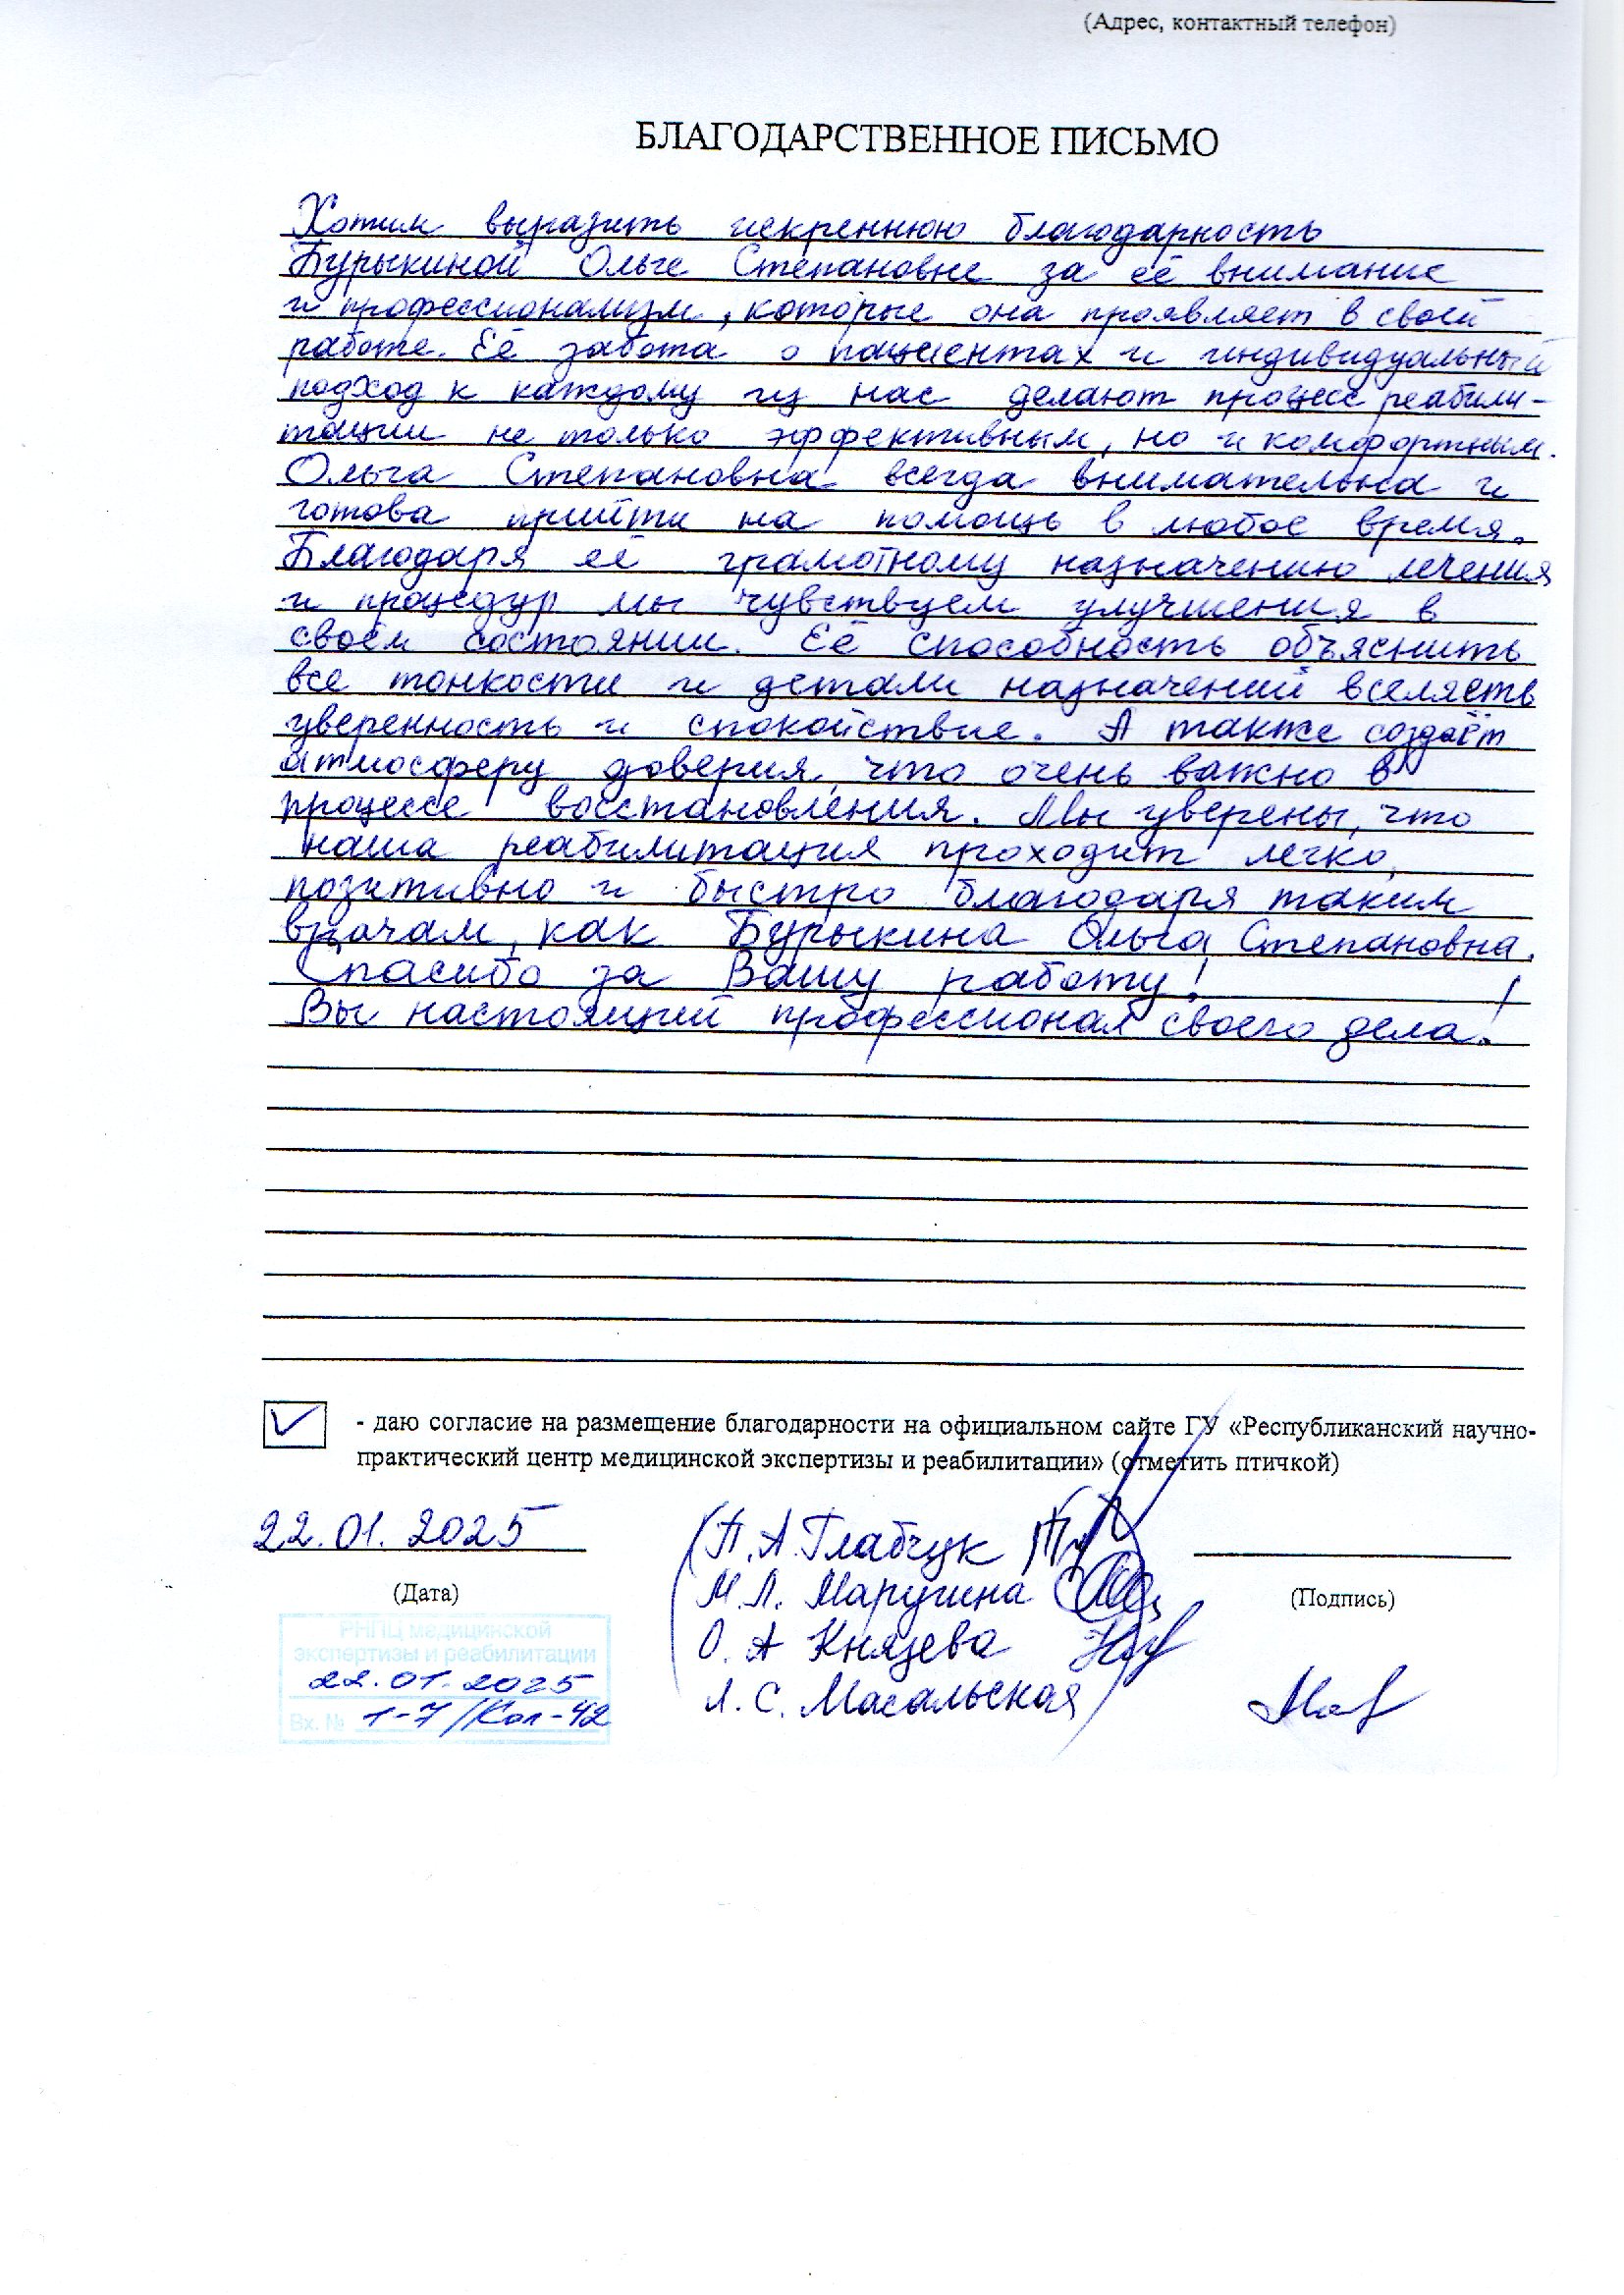 (Адрес, контактный телефон)
БЛАГОДАРСТВЕННОЕ ПИСЬМО
Хотим выразить искреннюю благодарность
Бурыкиной Ольге Степановне за её внимание
и профессионализм, которые она проявляет в своей
работе. Её забота о пациентах и индивидуальный
подход к каждому из нас делают процесс реабили-
тации не только эффективным, но и комфортным.
Ольга Степановна всегда внимательна и
готова прийти на помощь в любое время.
Благодаря её грамотному назначению лечения
и процедур мы чувствуем улучшения в
своём состоянии. Её способность объяснить
все тонкости и детали назначений вселяеть
уверенность и спокойствие. А также создаёт
атмосферу доверия, что очень важно в
процессе восстановления. Мы уверены, что
наша реабилитация проходит легко,
позитивно и быстро благодаря таким
врачам, как Бурыкина Ольга Степановна.
Спасибо за Вашу работу!
Вы настоящий профессионал своего дела!
- даю согласие на размещение благодарности на официальном сайте ГУ «Республиканский научно-
практический центр медицинской экспертизы и реабилитации» (отметить птичкой)
22.01.2025
(Дата)
П.А. Глабчук
М.Л. Маругина
О.А Князева
Л.С. Масальская
(Подпись)
РНПЦ медицинской
экспертизы и реабилитации
22.01.2025
Вх. № 1-7/Кол-42